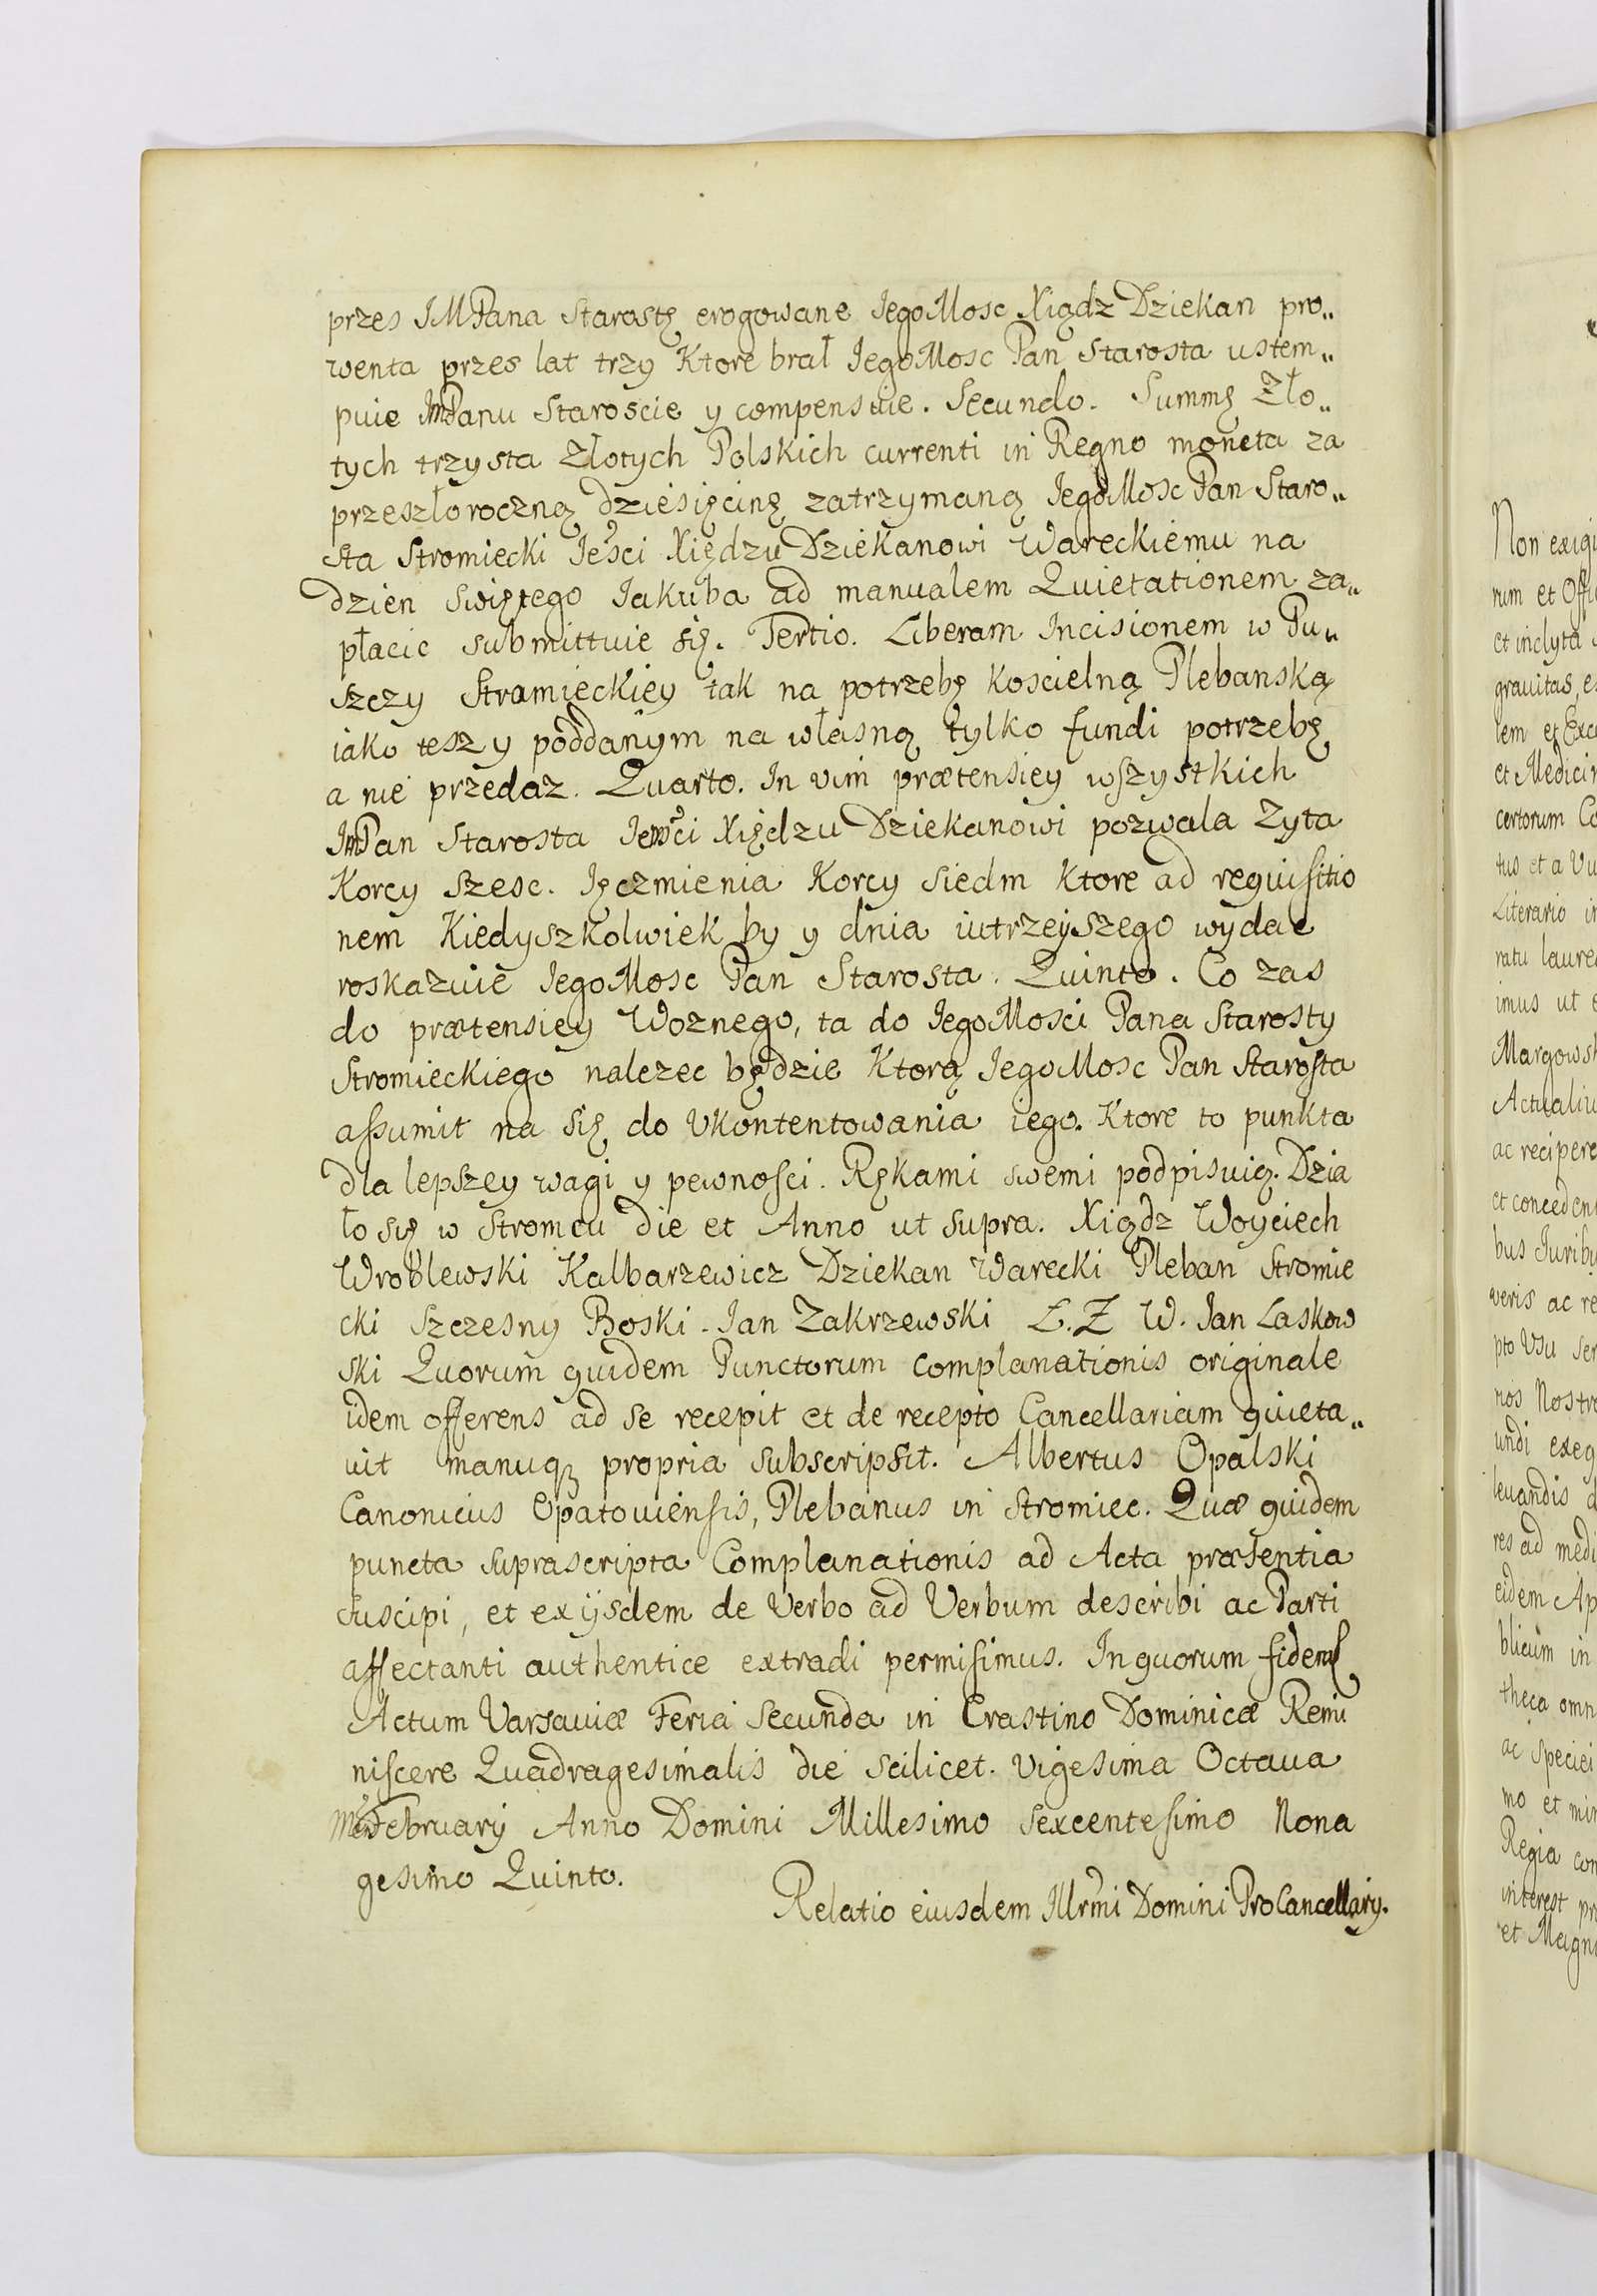 przes JMPana Starostę erogowane JegoMosc Xiądz Dziekan pro„
wenta przes lat trzy Ktore brał JegoMosc Pan Starosta ustem„
puie JmPanu Staroscie y compensuie. Secundo. Summę Zło„
tych trzysta Złotych Polskich currenti in Regno moneta za
przeszłoroczną dziesięcinę zatrzymaną JegoMosc Pan Staro„
sta Stromiecki Jeści Xiędzu Dziekanowi Wareckiemu na
dzien swiętego Jakuba ad manualem Quietationem za„
płacic submittuie się. Tertio. Liberam Incisionem w Pu„
szczy Stramieckiey tak na potrzebę Koscielną Plebanską
iako tesz y poddanym na własną tylko fundi potrzebę
a nie przedaz. Quarto. In vim prætensiey wszystkich
JmPan Starosta Jemści Xiędzu Dziekanowi pozwala Zyta
Korcy szesc. Jęczmienia Korcy siedm Ktore ad requisitio
nem Kiedyszkolwiek by y dnia iutrzeyszego wydac
roskazuie JegoMosc Pan Starosta. Quinto. Co zas
do prætensiey Woznego, ta do JegoMosci Pana Starosty
Stromieckiego nalezec będzie Ktorą JegoMosc Pan Starosta
assumit na się do Vkontentowania iego. Ktore to punkta
dla lepszey wagi y pewnosci. Rękami swemi podpisuią. Dzia
ło się w Stromcu die et Anno ut supra. Xiądz Woyciech
Wroblewski Kalbarzewicz Dziekan Warecki Pleban Stromie
cki Szczesny Boski. Jan Zakrzewski Ł. Z W. Jan Laskow
ski Quorum quidem Punctorum complanationis originale
idem offerens ad se recepit et de recepto Cancellariam quieta„
uit manuqꝫ propria subscripsit. Albertus Opalski
Canonicus Opatouiensis, Plebanus in Stromiec. Quæ quidem
puncta suprascripta Complanationis ad Acta præsentia
suscipi, et ex ijsdem de Verbo ad Verbum describi ac Parti
affectanti authentice extradi permisimus. In quorum fidem
Actum Varsauiæ Feria Secunda in Crastino Dominicæ Remi
niscere Quadragesimalis die scilicet. Vigesima Octaua
Februarij Anno Domini Millesimo Sexcentesimo Nona
gesimo Quinto.
Relatio eiusdem Illrmi Domini ProCancellarij.
Non exigi
rum et Offi
et inclyta
grauitas, e
lem et Exce
et Medicin
certorum Co
tus et a Vu
Literario in
ratu laure
imus ut e
Margows
Actualiu
ac recipere
et conceden
bus Juribu
veris ac re
pto Vsu ser
nos Nostro
undi exeq
leuandis
res ad medi
eidem Ap
blicum in
theca omn
ac speciei
mo et min
Regia con
interest pr
et Magn